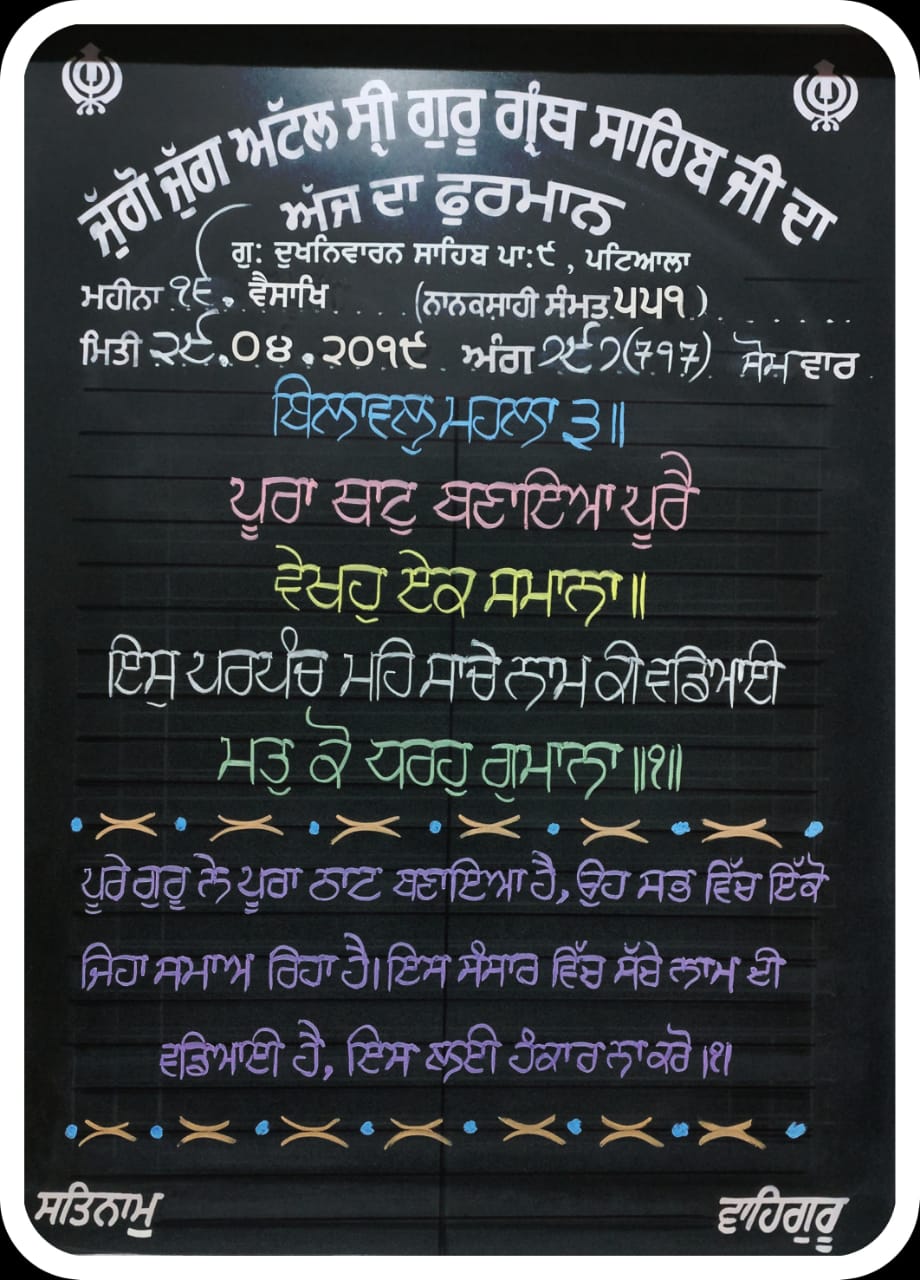 ਜੁੱਗੋ ਜੁੱਗ ਅਟੱਲ ਸ੍ਰੀ ਗੁਰੂ ਗ੍ਰੰਥ ਸਾਹਿਬ ਜੀ ਦਾ
ਅੱਜ ਦਾ ਫੁਰਮਾਨ
ਗੁ: ਦੁਖਨਿਵਾਰਨ ਸਾਹਿਬ ਪਾ:੯ , ਪਟਿਆਲਾ
ਮਹੀਨਾ ੧੬. ਵੈਸਾਖਿ (ਨਾਨਕਸ਼ਾਹੀ ਸੰਮਤ ੫੫੧)
ਮਿਤੀ ੨੯.੦੪.੨੦੧੯ ਅੰਗ ੭੯੭(797) ਸੋਮ ਵਾਰ
ਬਿਲਾਵਲੁ ਮਹਲਾ ੩॥
ਪੂਰਾ ਥਾਟੁ ਬਣਾਇਆ ਪੂਰੈ
ਵੇਖਹੁ ਏਕ ਸਮਾਨਾ॥
ਇਸੁ ਪਰਪੰਚ ਮਹਿ ਸਾਚੇ ਨਾਮ ਕੀ ਵਡਿਆਈ
ਮਤੁ ਕੋ ਧਰਹੁ ਗੁਮਾਨਾ॥੧॥
ਪੂਰੇ ਗੁਰੂ ਨੇ ਪੂਰਾ ਠਾਟ ਬਣਾਇਆ ਹੈ, ਉਹ ਸਭ ਵਿੱਚ ਇੱਕੋ
ਜਿਹਾ ਸਮਾਅ ਰਿਹਾ ਹੈ। ਇਸ ਸੰਸਾਰ ਵਿੱਚ ਸੱਚੇ ਨਾਮ ਦੀ
ਵਡਿਆਈ ਹੈ, ਇਸ ਲਈ ਹੰਕਾਰ ਨਾ ਕਰੋ।੧।
ਸਤਿਨਾਮੁ ਵਾਹਿਗੁਰੂ